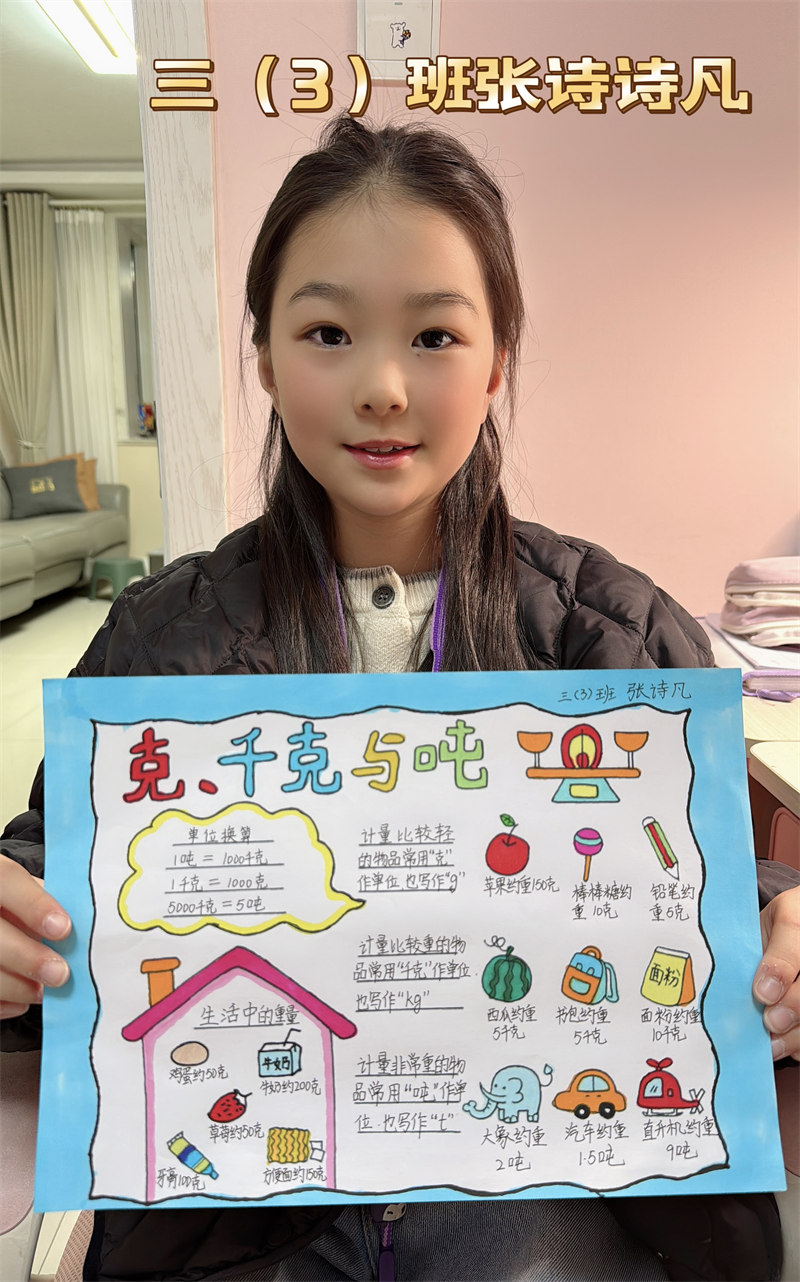 三（3）班张诗诗凡
三(3)班 张诗凡
克、千克与吨
单位换算
1吨 = 1000千克
1千克 = 1000克
5000千克 = 5吨
计量比较轻
的物品常用“克”
作单位,也写作“g”
苹果约重150克
棒棒糖约
重10克
铅笔约
重5克
计量比较重的物
品常用“千克”作单位.
也写作“kg”
西瓜约重
5千克
书包约重
5千克
面粉
面粉约重
10千克
计量非常重的物
品常用“吨”作单
位.也写作“t”
大象约重
2吨
汽车约重
1.5吨
直升机约重
9吨
生活中的重量
鸡蛋约50克
牛奶
牛奶约200克
草莓约50克
牙膏100克
方便面约150克